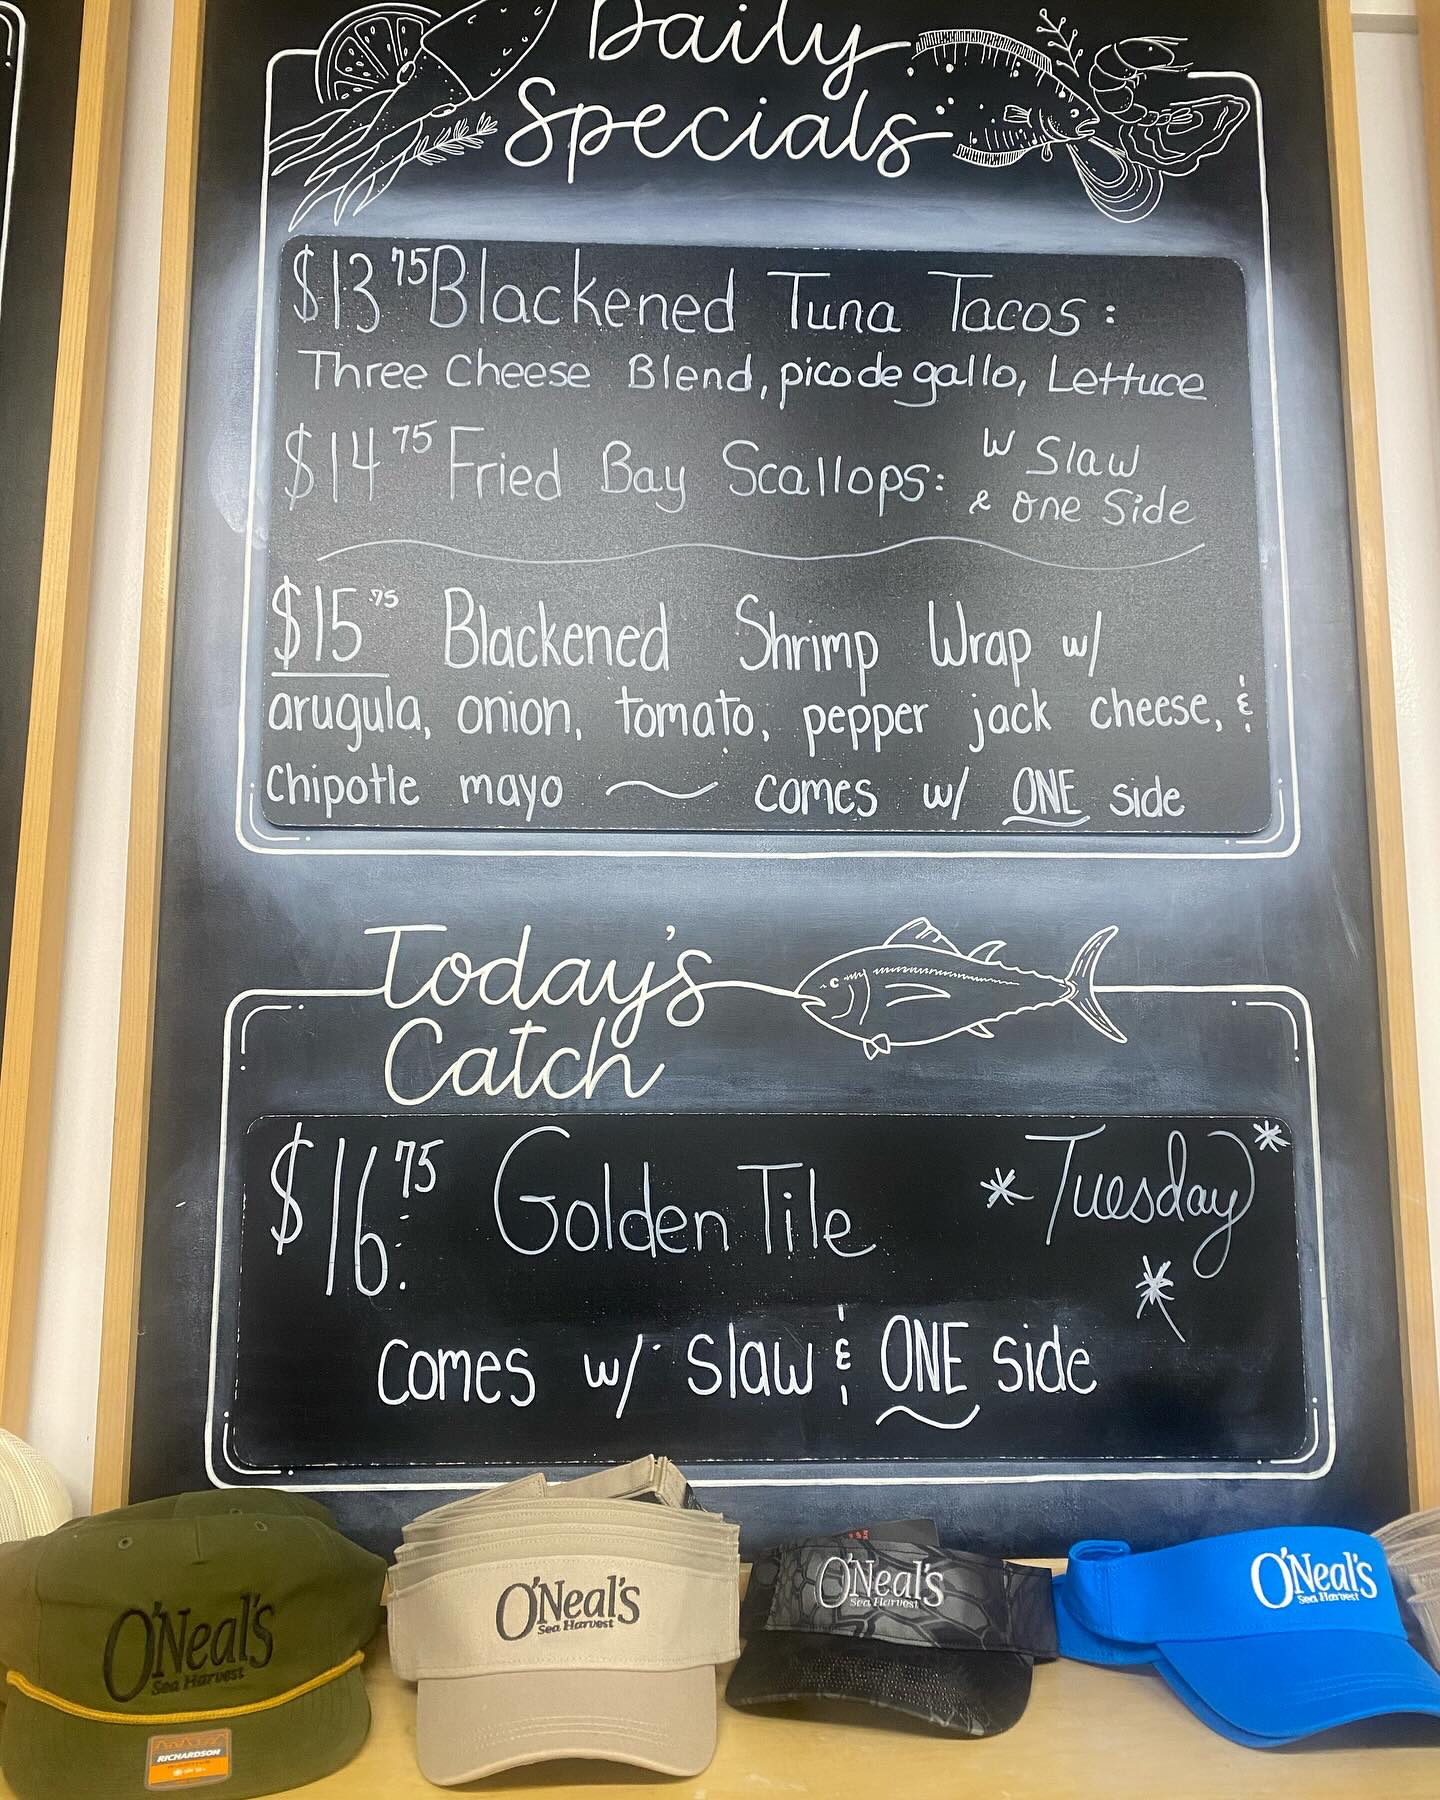 Daily
Specials
$13 75 Blackened Tuna Tacos:
Three Cheese Blend, pico de gallo, Lettuce
$14 75 Fried Bay Scallops: w Slaw
& one Side
$15.75 Blackened Shrimp Wrap w/
arugula, onion, tomato, pepper jack cheese, &
Chipotle mayo ~ comes w/ ONE side
Today's
Catch
$16.75 Golden Tile *Tuesday*
*
comes w/ slaw & ONE side
O'Neal's
Sea Harvest
RICHARDSON
O'Neal's
Sea Harvest
O'Neal's
Sea Harvest
O'Neal's
Sea Harvest